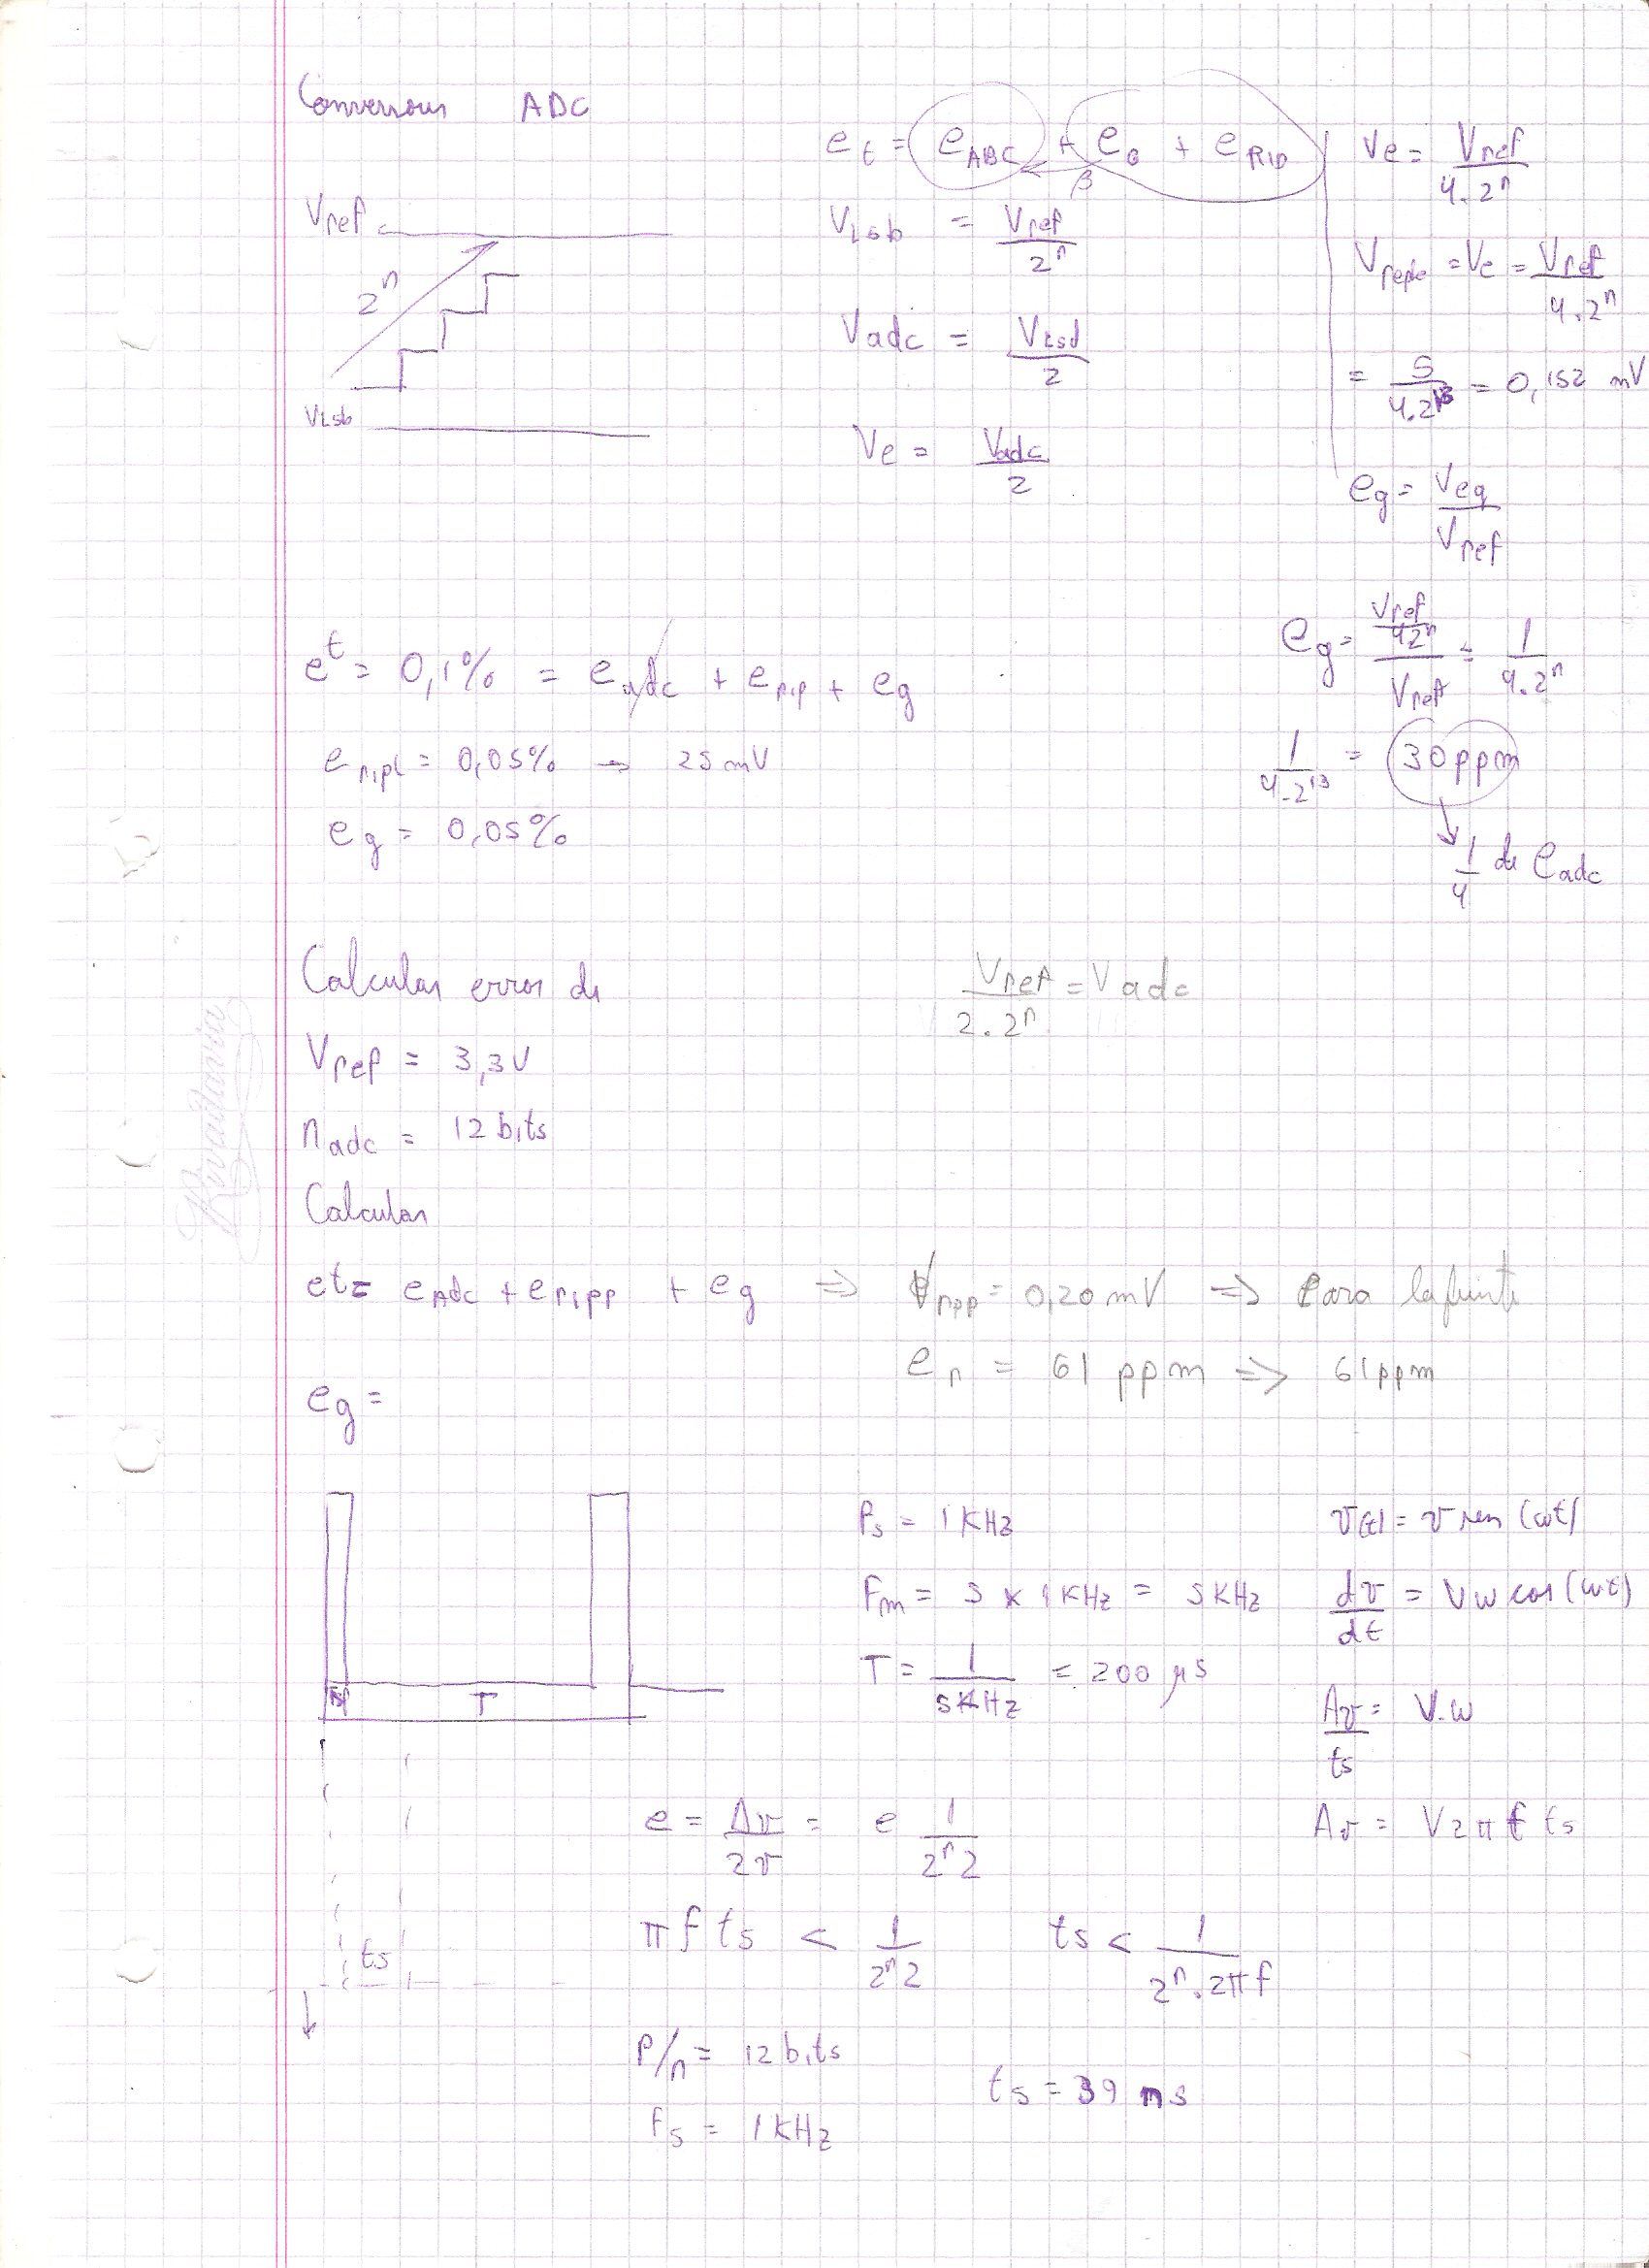 Conversour ADC
e_t = e_ABC + e_G + e_RIP
β
V_ref
2^n
V_Lsb
V_Lsb = V_ref / 2^n
V_adc = V_Lsd / 2
V_e = V_adc / 2
V_e = V_ref / 4.2^n
V_reple = V_e = V_ref / 4.2^n
= 5 / 4.2^13 = 0,152 mV
e_g = V_eg / V_ref
e_g = (V_ref / 4 2^n) / V_ref = 1 / 4.2^n
1 / 4.2^13 = 30 ppm
1/4 de e_adc
e^t = 0,1% = e_adc + e_rip + e_g
e_ripl = 0,05% → 25 mV
e_g = 0,05%
Calcular error de
V_ref / 2.2^n = V adc
V_ref = 3,3V
n_adc = 12 bits
Calcular
et = e_Adc + e_ripp + e_g ⇒ V_rpp = 0,20 mV ⇒ Para la fuente
e_r = 61 ppm ⇒ 61 ppm
e_g =
Rivadavia
T
F_s = 1 KHz
F_m = 5 x 1 KHz = 5 KHz
T = 1 / 5 KHz = 200 μs
v(t) = v sen (ωt)
dv/dt = V w cos (ωt)
Δv / ts = V.w
Δv = V 2 π f ts
e = Δv / 2v = e 1 / 2^n 2
π f ts < 1 / 2^n 2
ts < 1 / 2^n . 2π f
ts
P/n = 12 bits
ts = 39 ns
F_s = 1 KHz